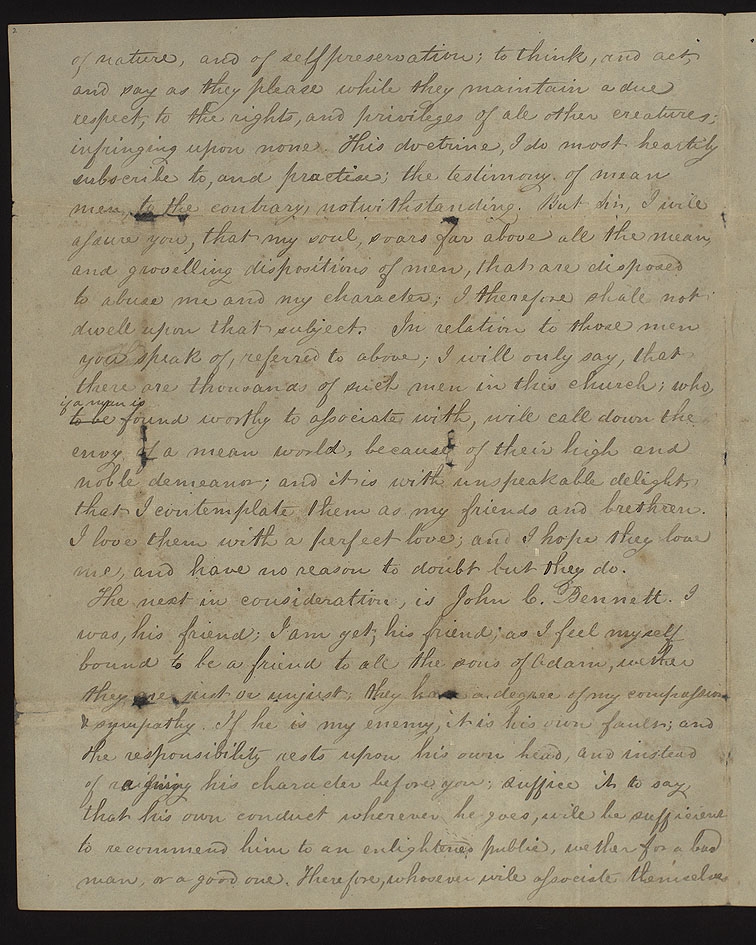 2
of nature, and of self preservation; to think, and act,
and say as they please while they maintain a due
respect, to the rights, and privileges of all other creatures;
infringing upon none. This doctrine, I do most heartily
subscribe to, and practise; the testimony of mean
men, to the contrary, notwithstanding. But Sir, I will
assure you, that my soul, soars far above all the mean,
and grovelling dispositions of men, that are disposed
to abuse me and my character; I therefore shall not
dwell upon that subject. In relation to those men
you speak of, referred to above; I will only say, that
there are thousands of such men in this church; who,
if a man is
to be found worthy to associate with, will call down the
envy of a mean world, because of their high and
noble demeanor; and it is with unspeakable delight,
that I contemplate them as my friends and brethren.
I love them with a perfect love; and I hope they love
me, and have no reason to doubt but they do.
The next in consideration, is John C. Bennett. I
was, his friend; I am yet, his friend; as I feel myself
bound to be a friend to all the sons of Adam, wether
they are just or unjust; they have a degree of my compassion
& sympathy. If he is my enemy, it is his own fault; and
the responsibility rests upon his own head, and instead
of his character before you; suffice it to say,
that his own conduct wherever he goes, will be sufficient
to recommend him to an enlightened public, wether for a bad
man, or a good one. Therefore, whosoever will associate themselves